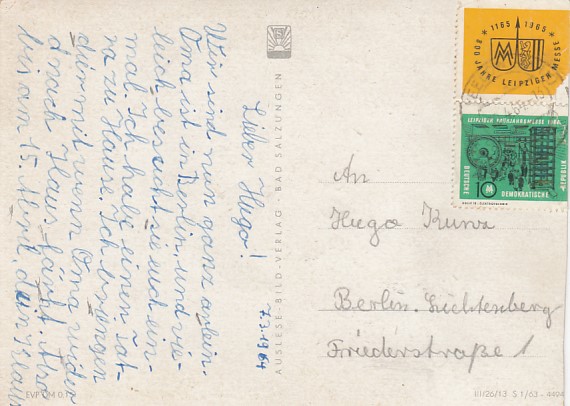 7.3.1964
Lieber Hugo!
Wir sind nun ganz allein.
Oma ist in Berlin, und vie-
leich besucht sie euch ein-
mal. Ich habe einen Tat-
zu Hause. Ich bringen
dur mit wenn Oma wider
nach Haus fährt. Also
bis am 15. Abert, dein Klaus
EVP DM 0,
AUSLESE-BILD-VERLAG BAD SALZUNGEN
1165 1965
800 JAHRE LEIPZIGER MESSE
LEIPZIGER FRÜHJAHRSMESSE 1964
10
DEUTSCHE DEMOKRATISCHE REPUBLIK
An
Hugo Kunz
Berlin-Lichtenberg
Friederstraße 1
III/26/13 S 1/63 - 4494